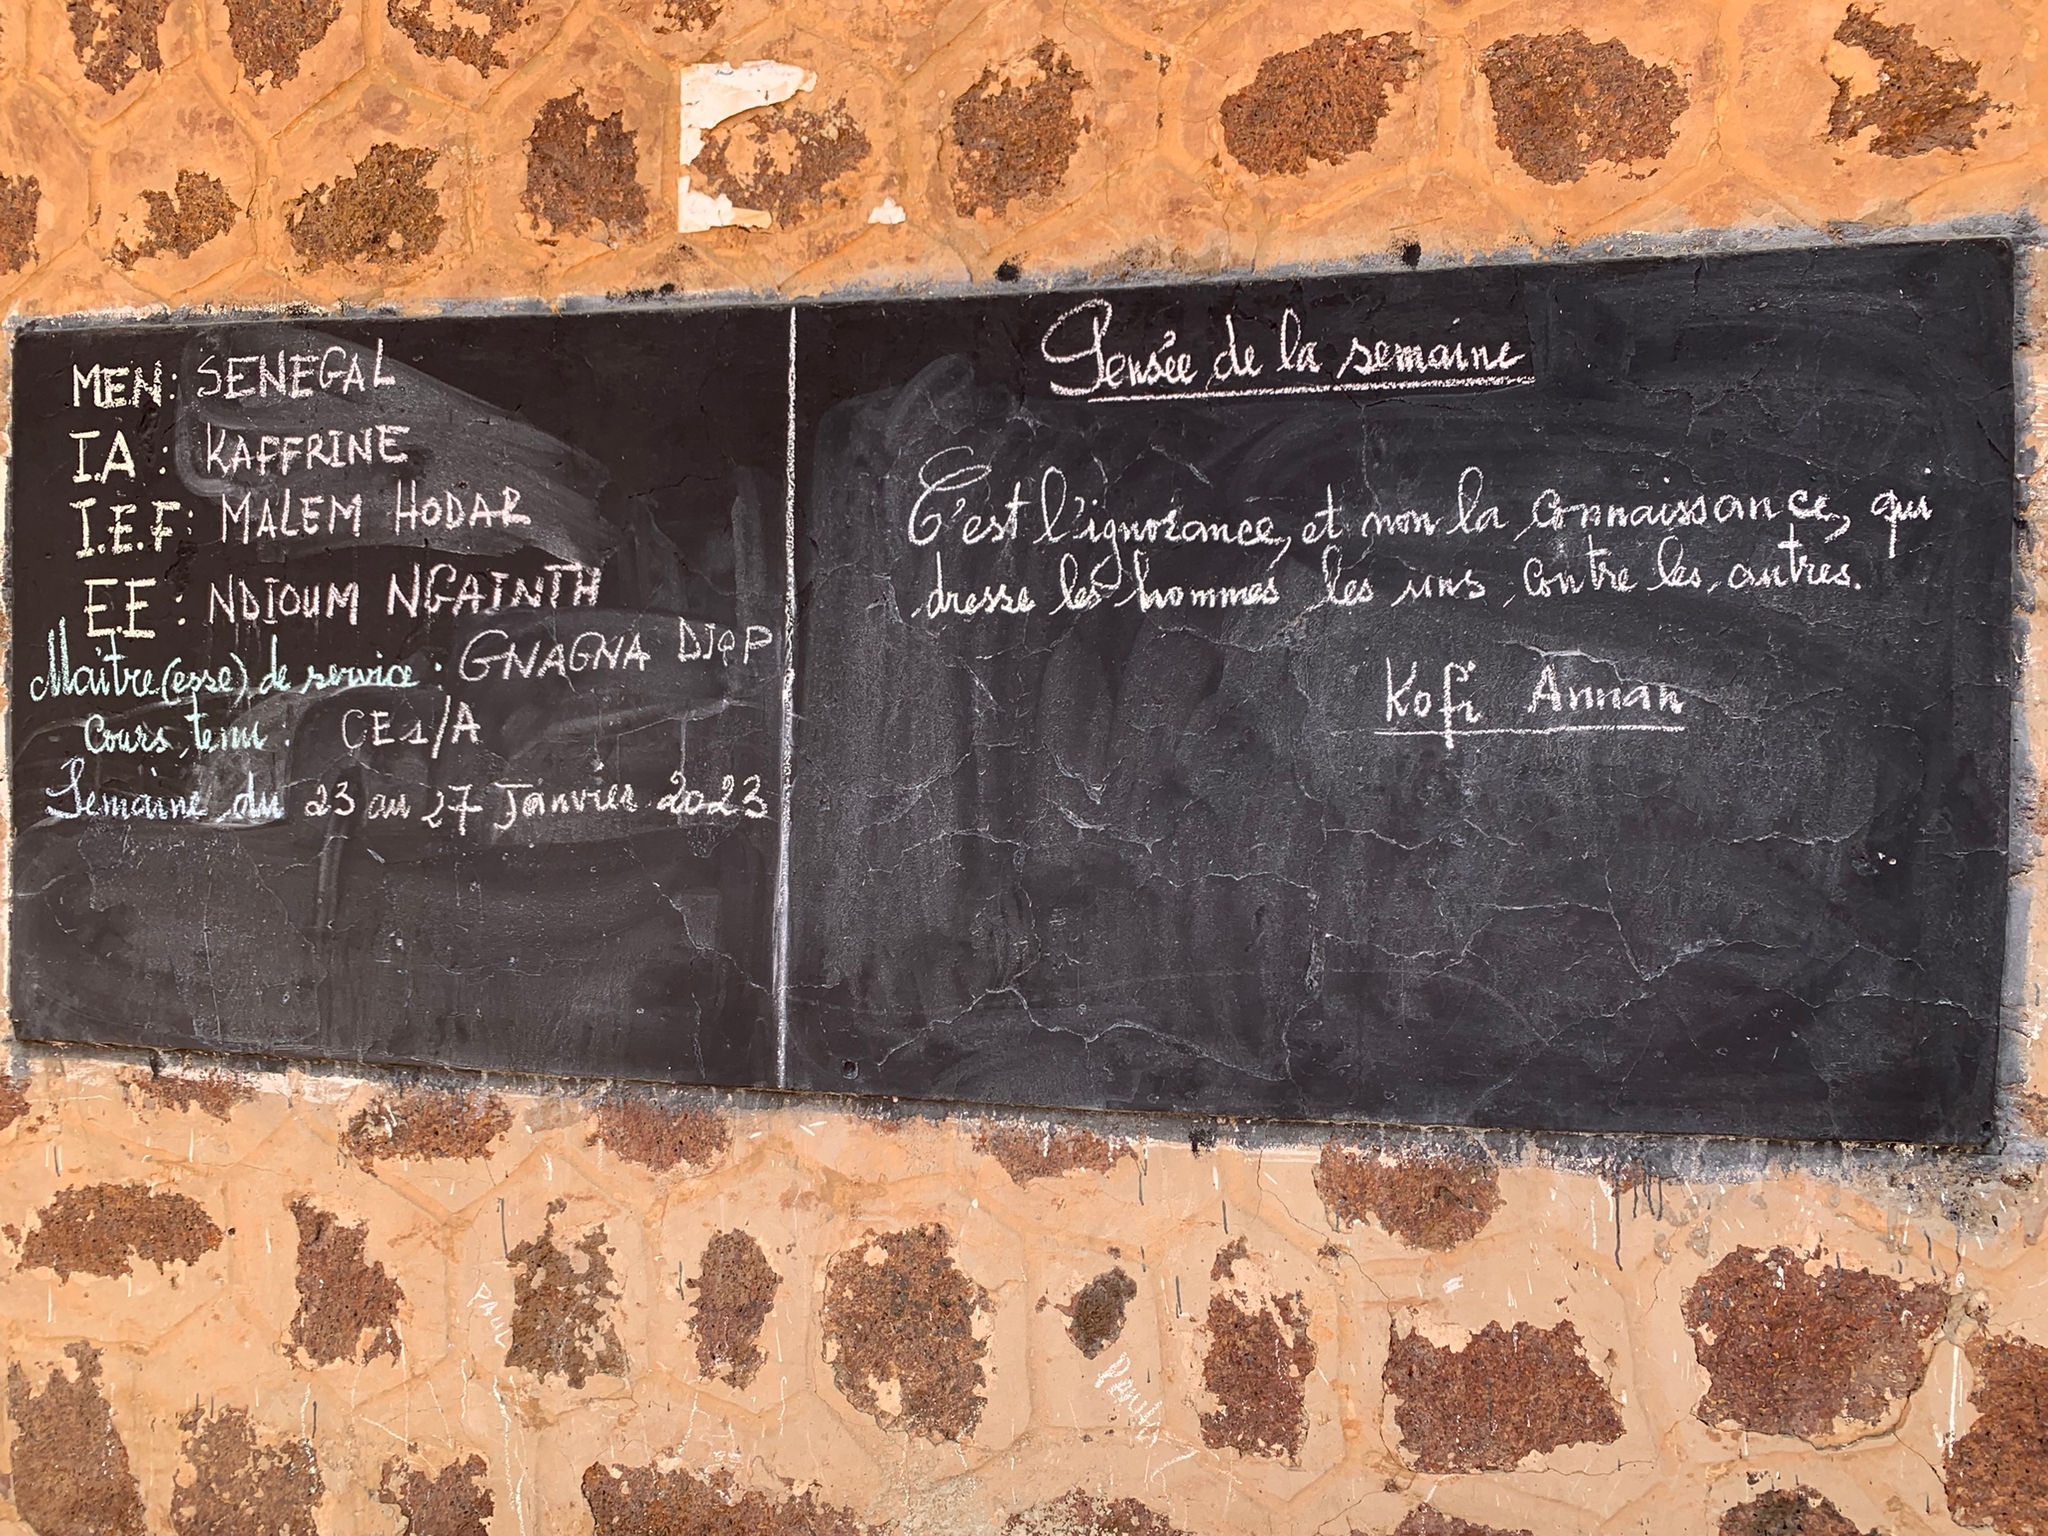 MEN: SENEGAL
I.A : KAFFRINE
I.E.F: MALEM HODAR
E.E : NDIOUM NGAINTH
Maître(esse) de service : GNAGNA DIOP
Cours tenu : CE1/A
Semaine du 23 au 27 Janvier 2023
Pensée de la semaine
C'est l'ignorance, et non la connaissance, qui
dresse les hommes les uns contre les autres.
Kofi Annan
PAUL